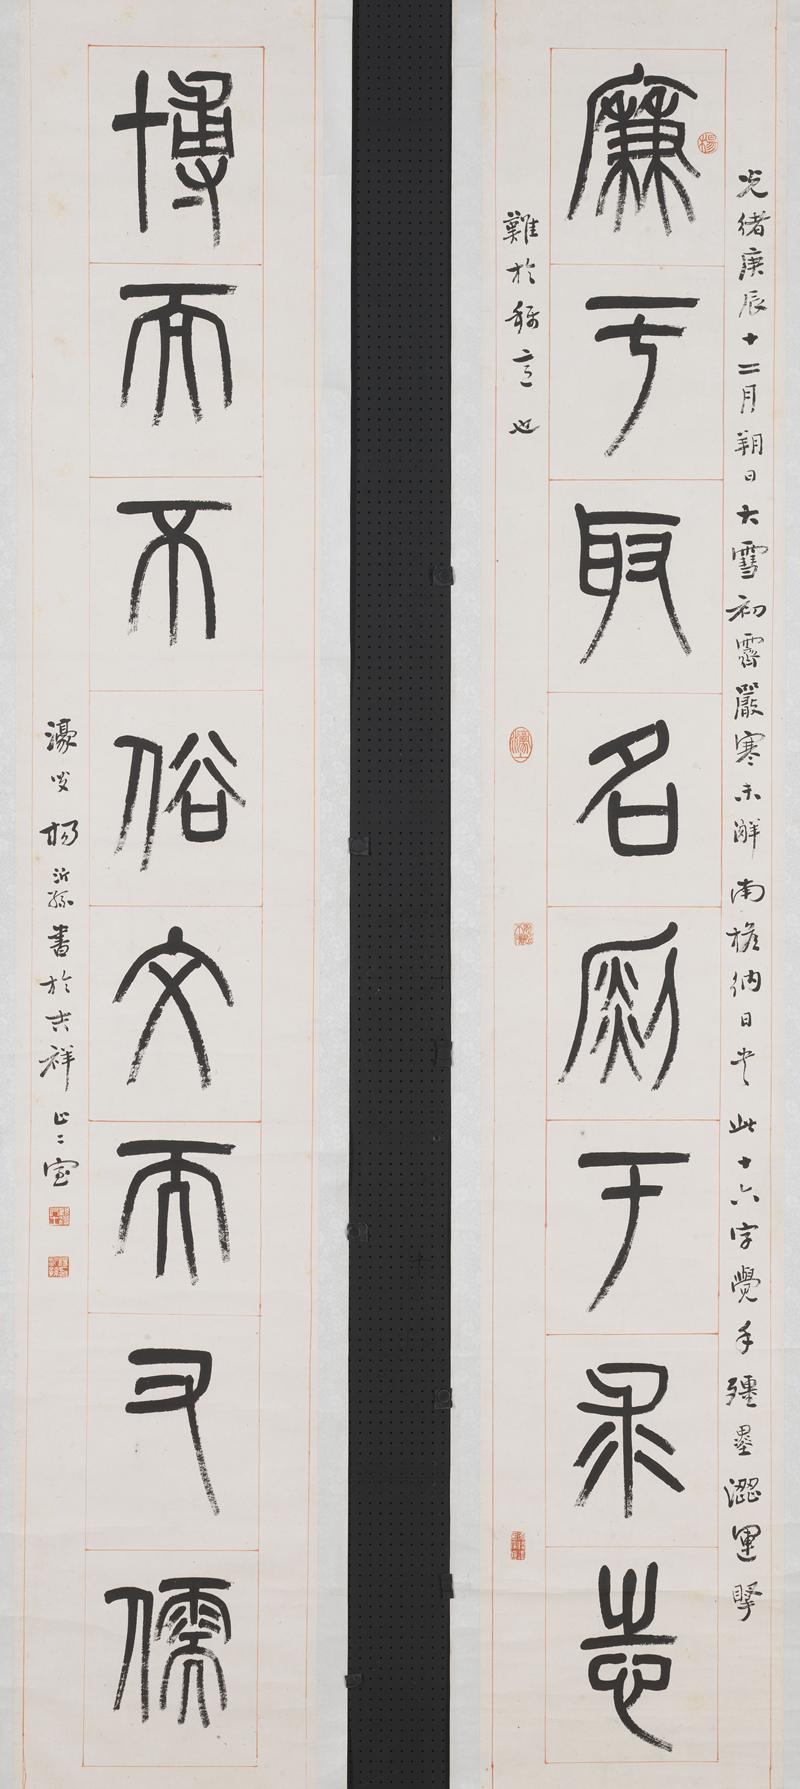 光緒庚辰十二月朔日大雪初霽嚴寒未解南檐納日書此十六字覺手殭墨澀運擘
廉于取名銳于求志
難於稱意也
博而不俗文而又儒
濠叟楊沂孫書於吉祥止二室